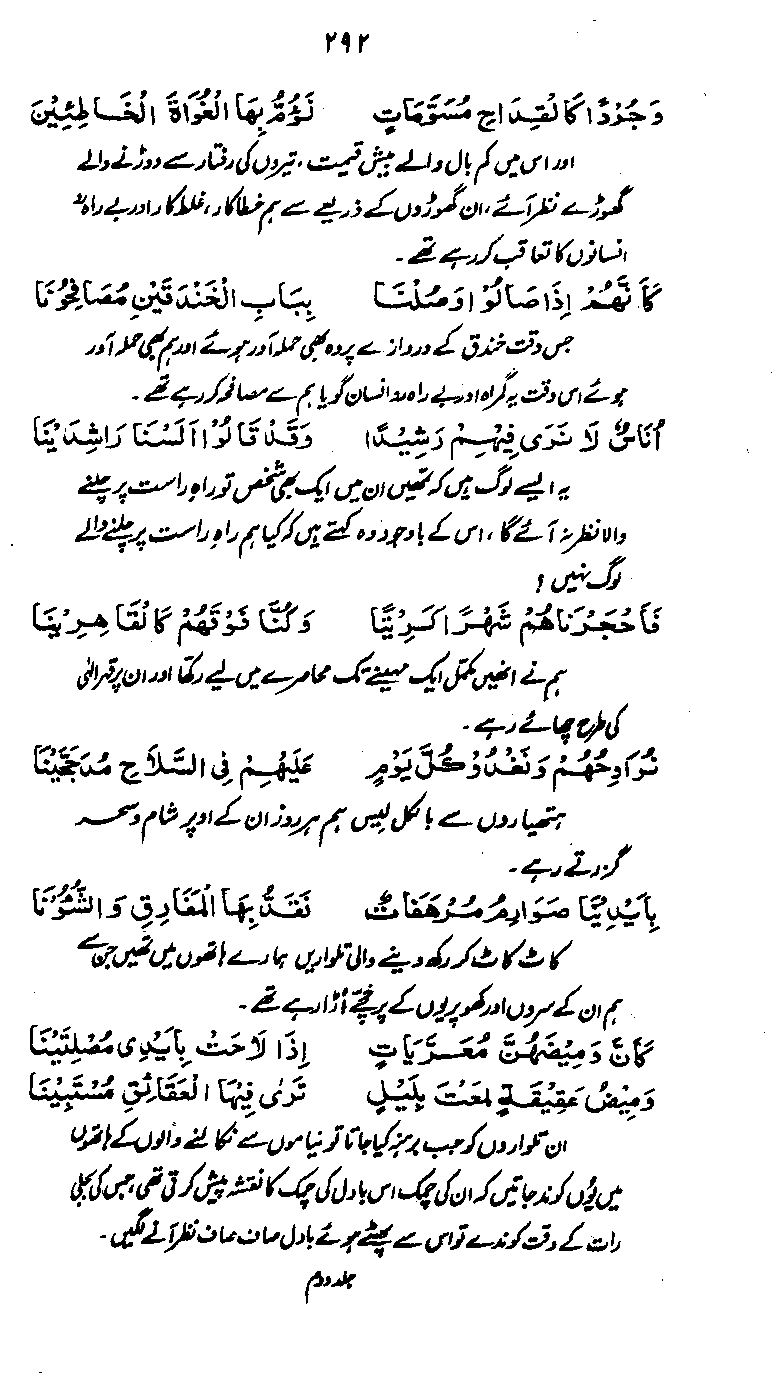 ۲۹۲
وَجُرْدًا كَالْقِدَاحِ مُسَوَّمَاتٍ نَؤُمُّ بِهَا الْغُوَاةَ الْخَاطِئِيْنَ
اور اس میں کم بال والے بیش قیمت، تیروں کی رفتار سے دوڑنے والے
گھوڑے نظر آئے، ان گھوڑوں کے ذریعے سے ہم خطاکار، غلط کار اور بے راہ رو
انسانوں کا تعاقب کر رہے تھے۔
كَأَنَّهُمْ إِذَا صَالُوْا وَصُلْنَا بِبَابِ الْخَنْدَقَيْنِ مُصَافِحُوْنَا
جس وقت خندق کے دروازے پر وہ بھی حملہ آور ہوئے اور ہم بھی حملہ آور
ہوئے اس وقت یہ گمراہ اور بے راہ رو انسان گویا ہم سے مصافحہ کر رہے تھے۔
أُنَاسٌ لَا نَرَى فِيْهِمْ رَشِيْدًا وَقَدْ قَالُوْا أَلَسْنَا رَاشِدِيْنَا
یہ ایسے لوگ ہیں کہ تمھیں ان میں ایک بھی شخص تو راہِ راست پر چلنے
والا نظر نہ آئے گا، اس کے باوجود وہ کہتے ہیں کہ کیا ہم راہِ راست پر چلنے والے
لوگ نہیں!
فَأَحْجَرْنَاهُمْ شَهْرًا كَرِيْتًا وَكُنَّا فَوْقَهُمْ كَالْقَاهِرِيْنَا
ہم نے انھیں مکمل ایک مہینے تک محاصرے میں لیے رکھا اور ان پر قہرِ الٰہی
کی طرح چھائے رہے۔
نُرَاوِحُهُمْ وَنَغْدُوْ كُلَّ يَوْمٍ عَلَيْهِمْ فِى السَّلَاحِ مُدَجَّجِيْنَا
ہتھیاروں سے بالکل لیس ہم ہر روز ان کے اوپر شام و سحر
گزرتے رہے۔
بِأَيْدِيْنَا صَوَارِمُ مُرْهَفَاتٌ نَقُدُّ بِهَا الْمَفَارِقَ وَالشُّؤُوْنَا
کاٹ کاٹ کر رکھ دینے والی تلواریں ہمارے ہاتھوں میں تھیں جن سے
ہم ان کے سروں اور کھوپریوں کے پرخچے اڑا رہے تھے۔
كَأَنَّ وَمِيْضَهُنَّ مُعَرَّيَاتٍ إِذَا لَاحَتْ بِأَيْدِى مُصْلِتَيْنَا
وَمِيْضُ عَقِيْقَةٍ لَمَعَتْ بِلَيْلٍ تَرٰى فِيْهَا الْعَقَائِقَ مُسْتَبِيْنَا
ان تلواروں کو جب برہنہ کیا جاتا تو نیاموں سے نکالنے والوں کے ہاتھوں
میں یوں کوند جاتیں کہ ان کی چمک اس بادل کی چمک کا نقشہ پیش کرتی تھی، جس کی بجلی
رات کے وقت کوندے تو اس سے پھٹے ہوئے بادل صاف صاف نظر آنے لگیں۔
جلد دوم